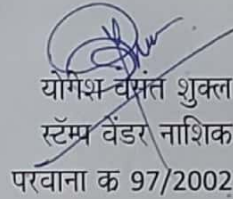 योगेश वसंत शुक्ल
स्टॅम्प वेंडर नाशिक
परवाना क 97/2002